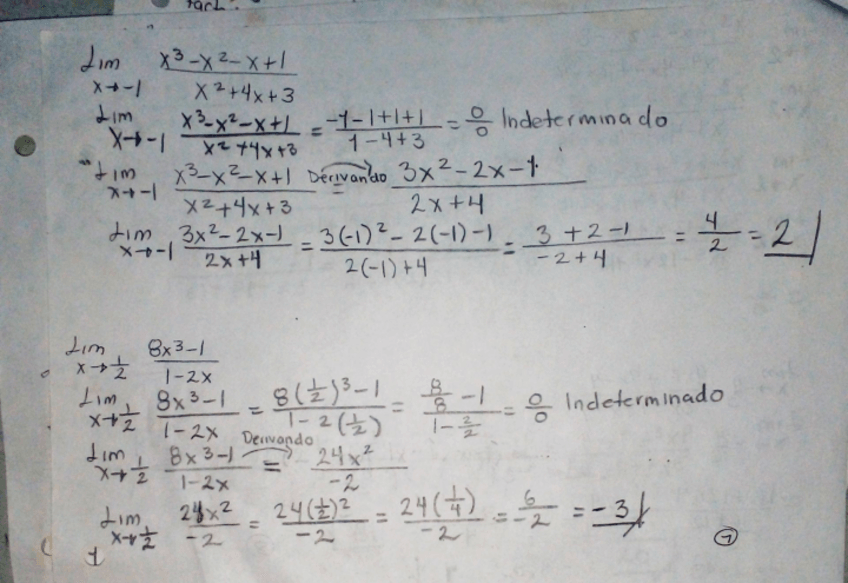 Lim x→-1 x³-x²-x+1 / x²+4x+3
Lim x→-1 x³-x²-x+1 / x²+4x+3 = -1-1+1+1 / 1-4+3 = 0/0 Indeterminado
Lim x→-1 x³-x²-x+1 / x²+4x+3 Derivando = 3x²-2x-1 / 2x+4
Lim x→-1 3x²-2x-1 / 2x+4 = 3(-1)²-2(-1)-1 / 2(-1)+4 = 3+2-1 / -2+4 = 4/2 = 2
Lim x→1/2 8x³-1 / 1-2x
Lim x→1/2 8x³-1 / 1-2x = 8(1/2)³-1 / 1-2(1/2) = 8/8-1 / 1-2/2 = 0/0 Indeterminado
Lim x→1/2 8x³-1 / 1-2x Derivando = 24x² / -2
Lim x→1/2 24x² / -2 = 24(1/2)² / -2 = 24(1/4) / -2 = 6/-2 = -3